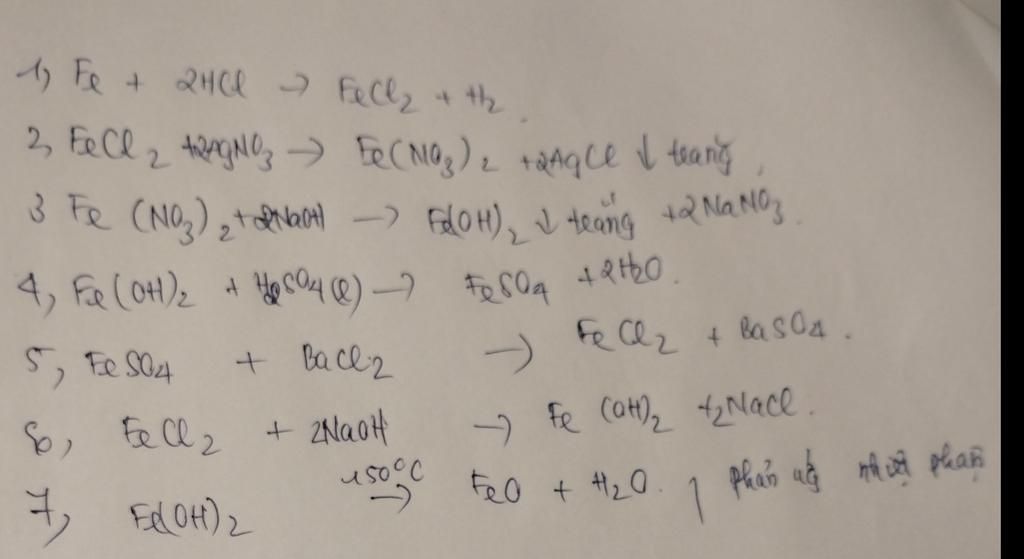 1, Fe + 2HCl → FeCl2 + H2.
2, FeCl2 +2AgNO3 → Fe(NO3)2 +2AgCl ↓ trắng.
3 Fe (NO3)2 +2NaOH → Fe(OH)2 ↓ trắng +2NaNO3.
4, Fe(OH)2 + H2SO4(l) → FeSO4 +2H2O.
5, FeSO4 + BaCl2 → FeCl2 + BaSO4.
6, FeCl2 + 2NaOH → Fe (OH)2 +2NaCl.
7, Fe(OH)2 150°C → FeO + H2O. phản ứg nhiệt phân